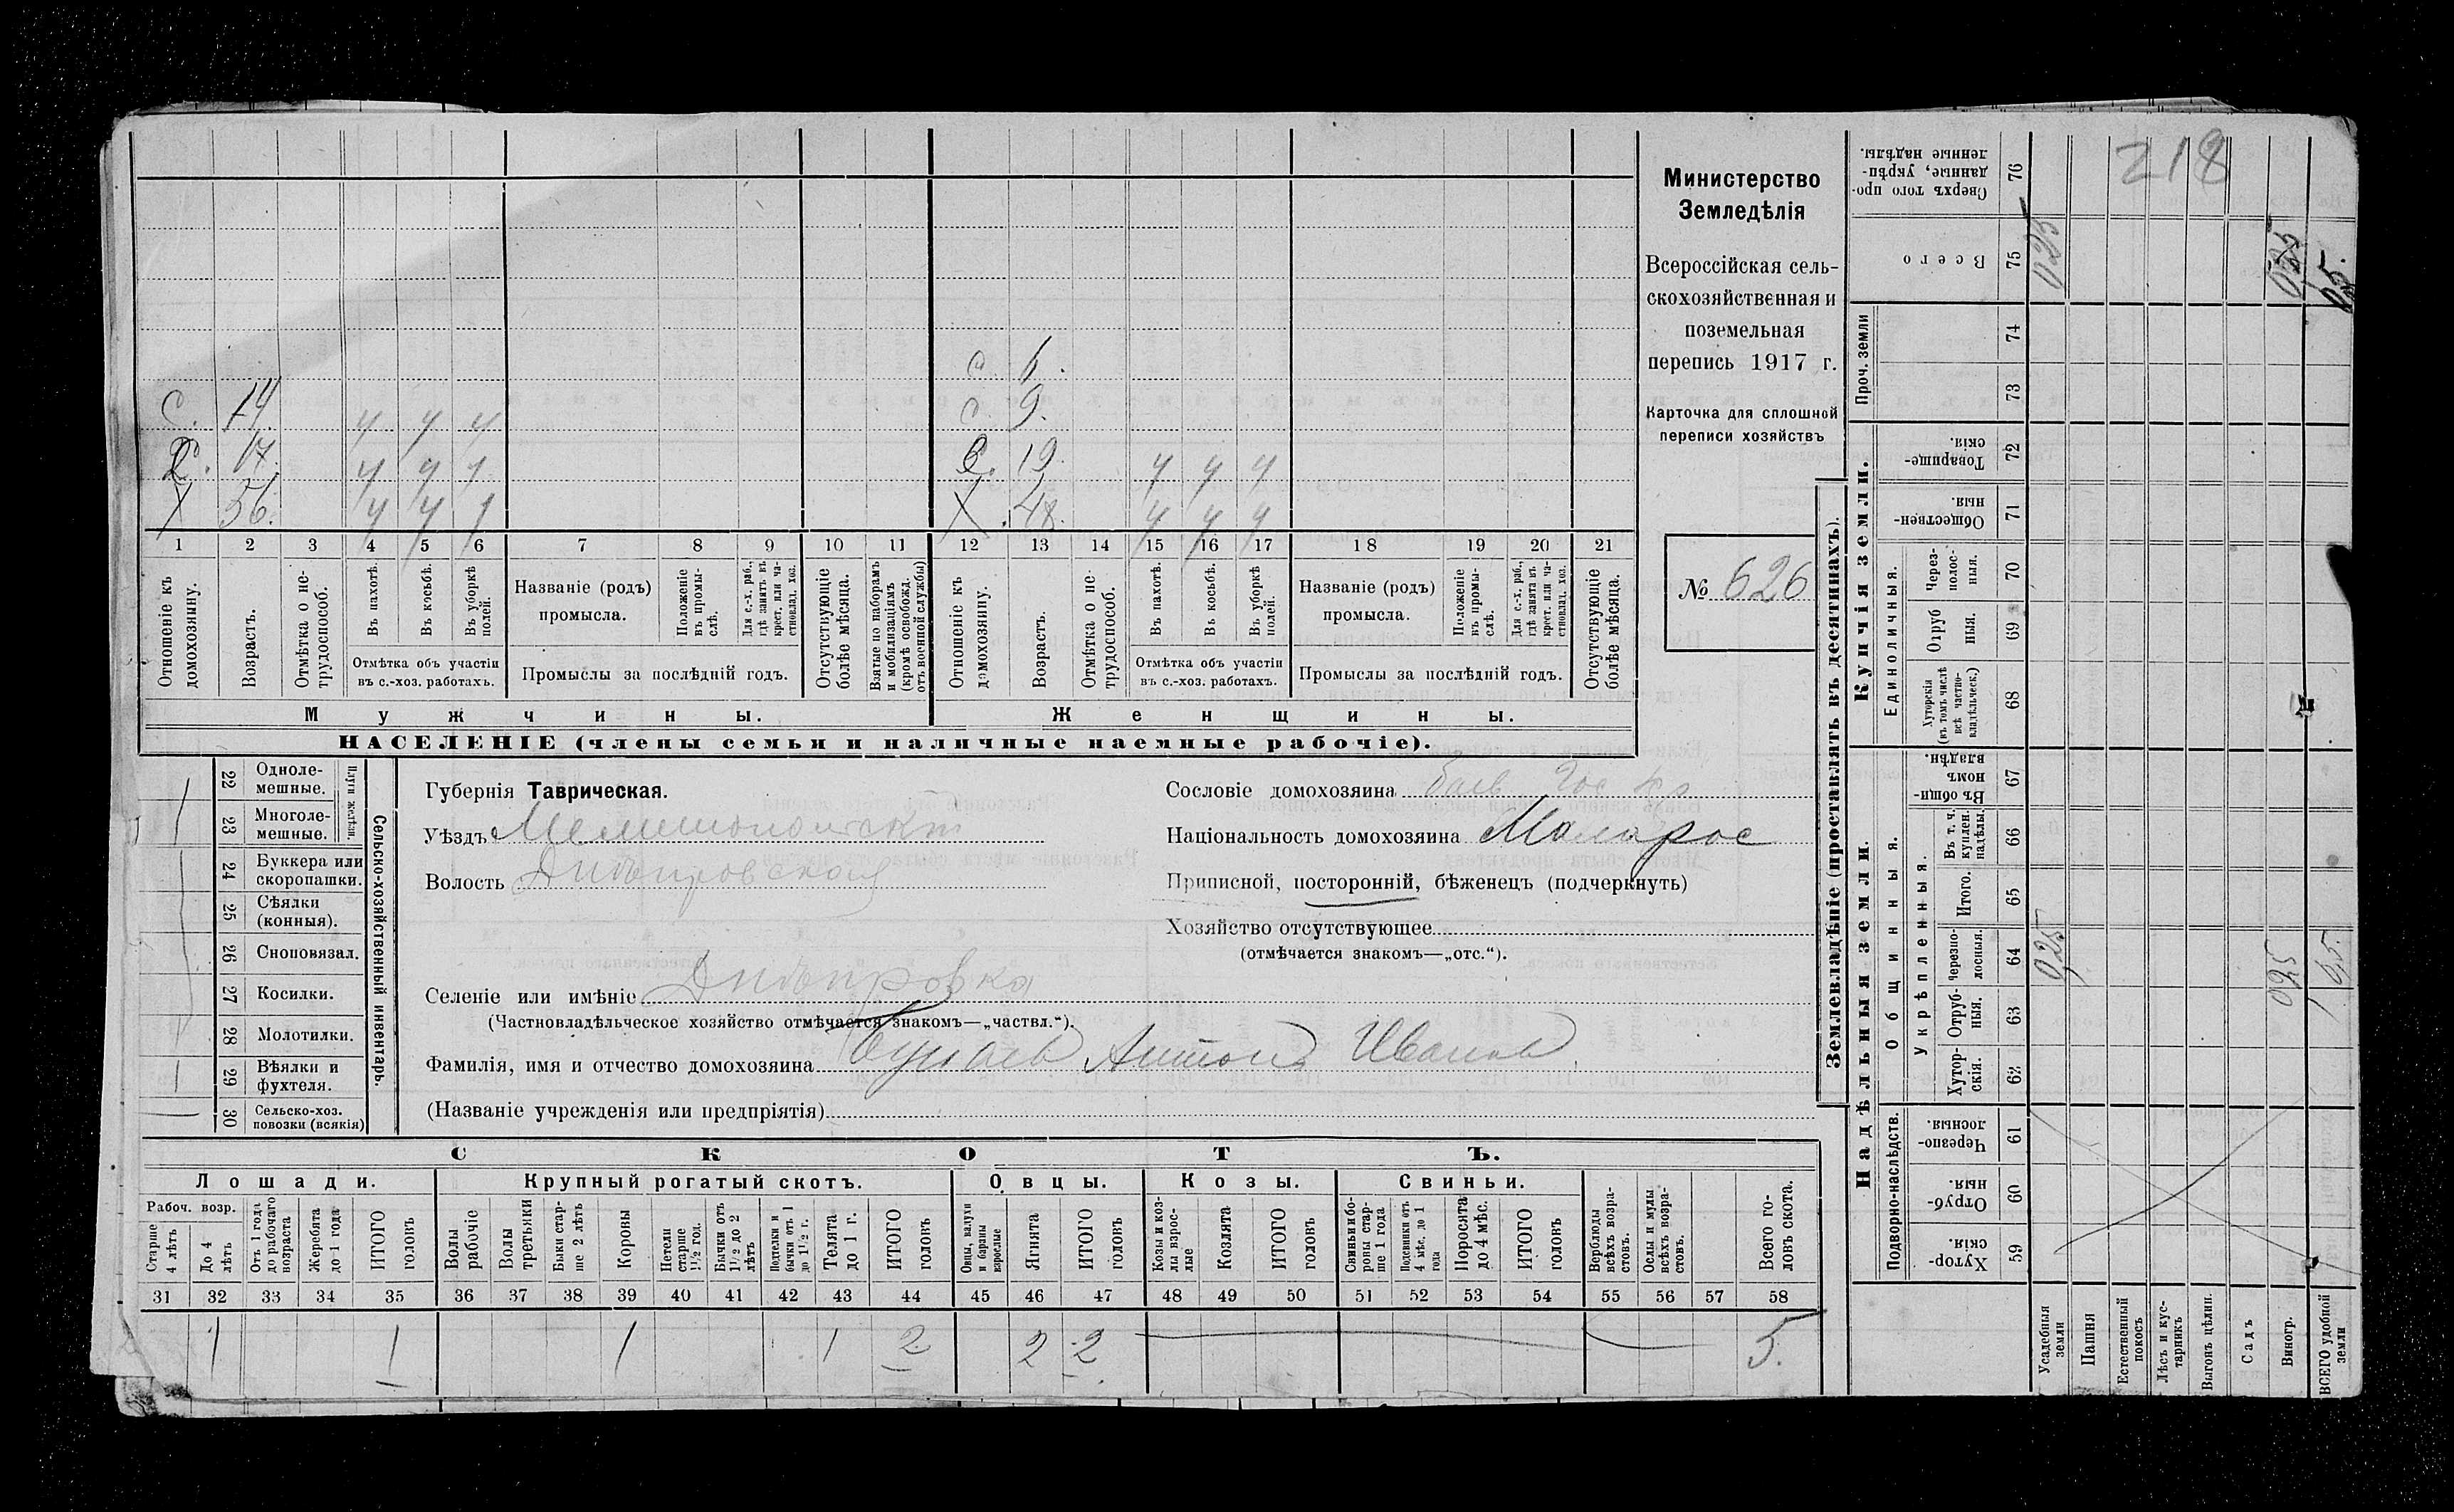 218
Министерство
Земледѣлія
Всероссійская сель-
скохозяйственная и
поземельная
перепись 1917 г.
Карточка для сплошной
переписи хозяйствъ
№ 626
с. 6.
С. 14. ч ч ч с. 9.
С. 17. ч ч ч С. 19. ч ч ч
Х 56. ч ч ч Х. 48. ч ч ч
1 2 3 4 5 6 7 8 9 10 11 12 13 14 15 16 17 18 19 20 21
Отношеніе къ домохозяину.
Возрастъ.
Отмѣтка о не-трудоспособ.
Въ пахотѣ.
Въ косьбѣ.
Въ уборкѣ полей.
Отмѣтка объ участіи
въ с.-хоз. работахъ.
Названіе (родъ)
промысла.
Положеніе въ промы-слѣ.
Для с.-х. раб., гдѣ занятъ въ крест. или ча-стновлад. хоз.
Промыслы за послѣдній годъ.
Отсутствующіе болѣе мѣсяца.
Взятые по наборамъ и мобилизаціямъ (кромѣ освобожд. отъ военной службы)
Отношеніе къ домохозяину.
Возрастъ.
Отмѣтка о не-трудоспособ.
Въ пахотѣ.
Въ косьбѣ.
Въ уборкѣ полей.
Отмѣтка объ участіи
въ с.-хоз. работахъ.
Названіе (родъ)
промысла.
Положеніе въ промы-слѣ.
Для с.-х. раб., гдѣ занята въ крест. или ча-стновлад. хоз.
Промыслы за послѣдній годъ.
Отсутствующіе болѣе мѣсяца.
Мужчины. Женщины.
НАСЕЛЕНІЕ (члены семьи и наличные наемные рабочіе).
22 Одноле-мешные.
23 Многоле-мешные.
Плуги желѣзн.
24 Буккера или скоропашки.
25 Сѣялки (конныя).
26 Сноповязал.
27 Косилки.
28 Молотилки.
29 Вѣялки и фухтеля.
30 Сельско-хоз. повозки (всякія)
Сельско-хозяйственный инвентарь.
Губернія Таврическая.
Уѣздъ Мелитопольскій
Волость Днѣпровская
Сословіе домохозяина
Національность домохозяина Малорос
Приписной, посторонній, бѣженецъ (подчеркнуть)
Хозяйство отсутствующее
(отмѣчается знакомъ—„отс.“).
Селеніе или имѣніе Днѣпровка
(Частновладѣльческое хозяйство отмѣчается знакомъ—„частвл.“).
Фамилія, имя и отчество домохозяина Антонъ Иванов
(Названіе учрежденія или предпріятія)
СКОТЪ.
Лошади. Крупный рогатый скотъ. Овцы. Козы. Свиньи.
Рабоч. возр.
Старше 4 лѣтъ
До 4 лѣтъ
Отъ 1 года до рабочаго возраста
Жеребята до 1 года
ИТОГО головъ
Волы рабочіе
Волы третьяки
Быки стар-ше 2 лѣтъ
Коровы
Нетели старше 1½ год.
Бычки отъ 1½ до 2 лѣтъ
Подтелки и бычки отъ 1 до 1½ г.
Телята до 1 г.
ИТОГО головъ
Овцы, валухи и бараны взрослые
Ягнята
ИТОГО головъ
Козы и коз-лы взрос-лые
Козлята
ИТОГО головъ
Свиньи и бо-ровы стар-ше 1 года
Подсвинки отъ 4 мѣс. до 1 года
Поросята до 4 мѣс.
ИТОГО головъ
Верблюды всѣхъ возра-стовъ.
Ослы и мулы всѣхъ возра-стовъ.
Всего го-ловъ скота.
31 32 33 34 35 36 37 38 39 40 41 42 43 44 45 46 47 48 49 50 51 52 53 54 55 56 57 58
1 1 1 1 2 2 2 5.
Землевладѣніе (проставлять въ десятинахъ).
Купчія земли.
Единоличныя.
Надѣльныя земли.
Общинныя.
Укрѣпленныя.
Подворно-наслѣдств.
Проч. земли
Сверхъ того про-данные, укрѣп-ленные надѣлы. 76
Всего 75 0,25 0,25 0,5.
74
73
Товарище-скія. 72
Обществен-ныя. 71
Через-полос-ныя. 70
Отруб ныя. 69
Хуторскія (въ томъ числѣ всѣ частно-владѣльческ.) 68
Въ общи-номъ владѣн. 67
Въ т. ч. куплен. надѣлы. 66
Итого. 65
Черезпо-лосныя. 64 0,25 0,25 0,5.
Отруб-ныя. 63
Хутор-скія. 62
Черезпо-лосныя. 61
Отруб-ныя. 60
Хутор-скія. 59
Усадебныя земли
Пашня
Естественный покосъ
Лѣсъ и кус-тарникъ
Выгонъ цѣлин.
Садъ
Виногр.
ВСЕГО удобной земли